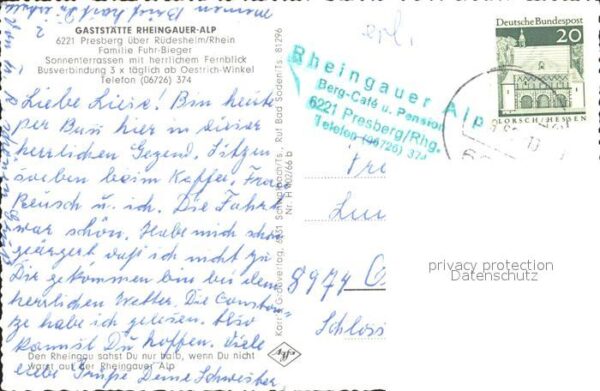 GASTSTÄTTE RHEINGAUER-ALP
6221 Presberg über Rüdesheim/Rhein
Familie Fuhr-Bieger
Sonnenterrassen mit herrlichem Fernblick
Busverbindung 3 x täglich ab Oestrich-Winkel
Telefon (06726) 374
Liebe Liesel! Bin heute
per Bus hier in dieser
herrlichen Gegend. Sitzen
soeben beim Kaffee, Frau
Reusch u. ich. Die Fahrt
war schön. Habe mich schon
geärgert, daß ich nicht zu
Dir gekommen bin bei dem
herrlichen Wetter. Die Constan-
ze habe ich gelesen. Also
kannst Du hoffen. Viele
liebe Grüße Deine Schwester
Den Rheingau sahst Du nur halb, wenn Du nicht
warst auf der Rheingauer Alp
Ruf Bad Soden/Ts. 81296
Nr. H 902/66 b
Agfa
Rheingauer Alp
Berg-Café u. Pension
6221 Presberg/Rhg.
Telefon (06726) 374
Deutsche Bundespost
20
LORSCH/HESSEN
8974
Schloss
privacy protection
Datenschutz